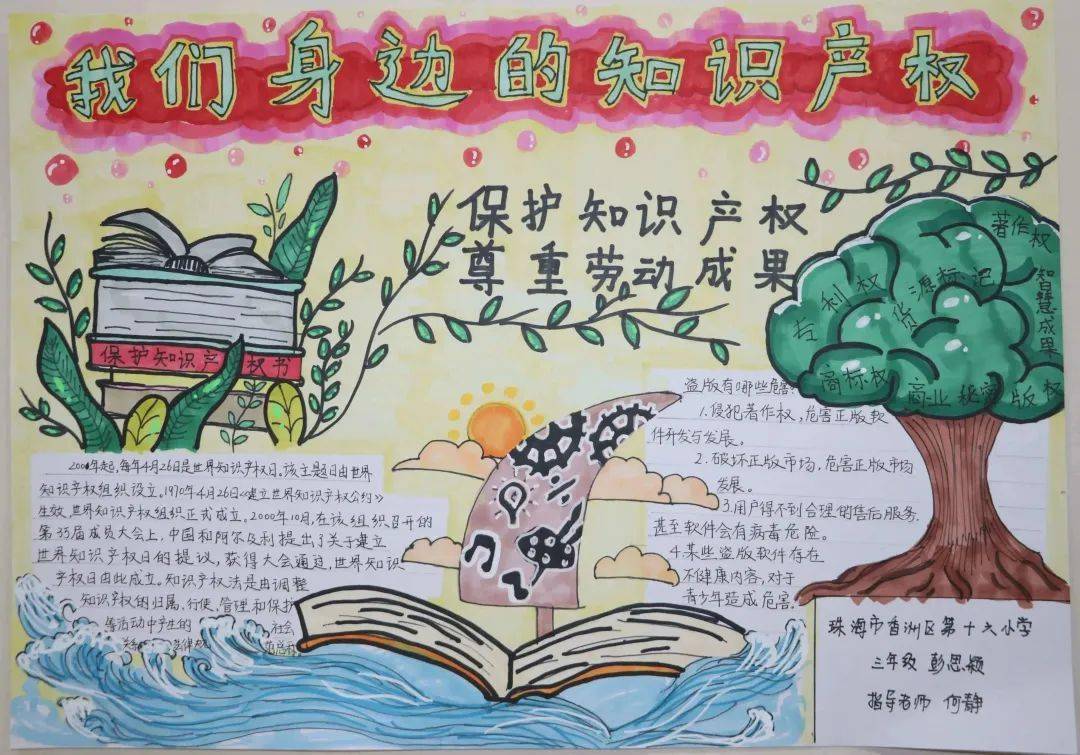 我们身边的知识产权
保护知识产权
尊重劳动成果
保护知识产权书
著作权
智慧成果
专利权
货源标记
商标权
商业秘密
版权
2000年起,每年4月26日是世界知识产权日,该主题日由世界
知识产权组织设立。1970年4月26日《建立世界知识产权公约》
生效,世界知识产权组织正式成立。2000年10月,在该组织召开的
第35届成员大会上,中国和阿尔及利提出了关于建立
世界知识产权日的提议,获得大会通过,世界知识
产权日由此成立。知识产权法是由调整
知识产权的归属、行使、管理和保护
等活动中产生的 社会
盗版有哪些危害?
1.侵犯著作权,危害正版软
件开发与发展。
2.破坏正版市场,危害正版市场
发展。
3.用户得不到合理销售后服务.
甚至软件会有病毒危险。
4.某些盗版软件存在
不健康内容,对于
青少年造成危害.
珠海市香洲区第十六小学
三年级 彭思颖
指导老师 何静